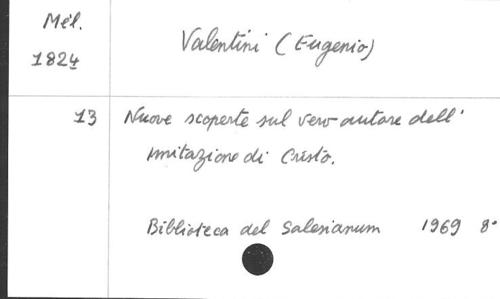 Mél.
1824
Valentini (Eugenio)
13
Nuove scoperte sul vero autore dell'
Imitazione di Cristo.
Biblioteca del Salesianum 1969 8°